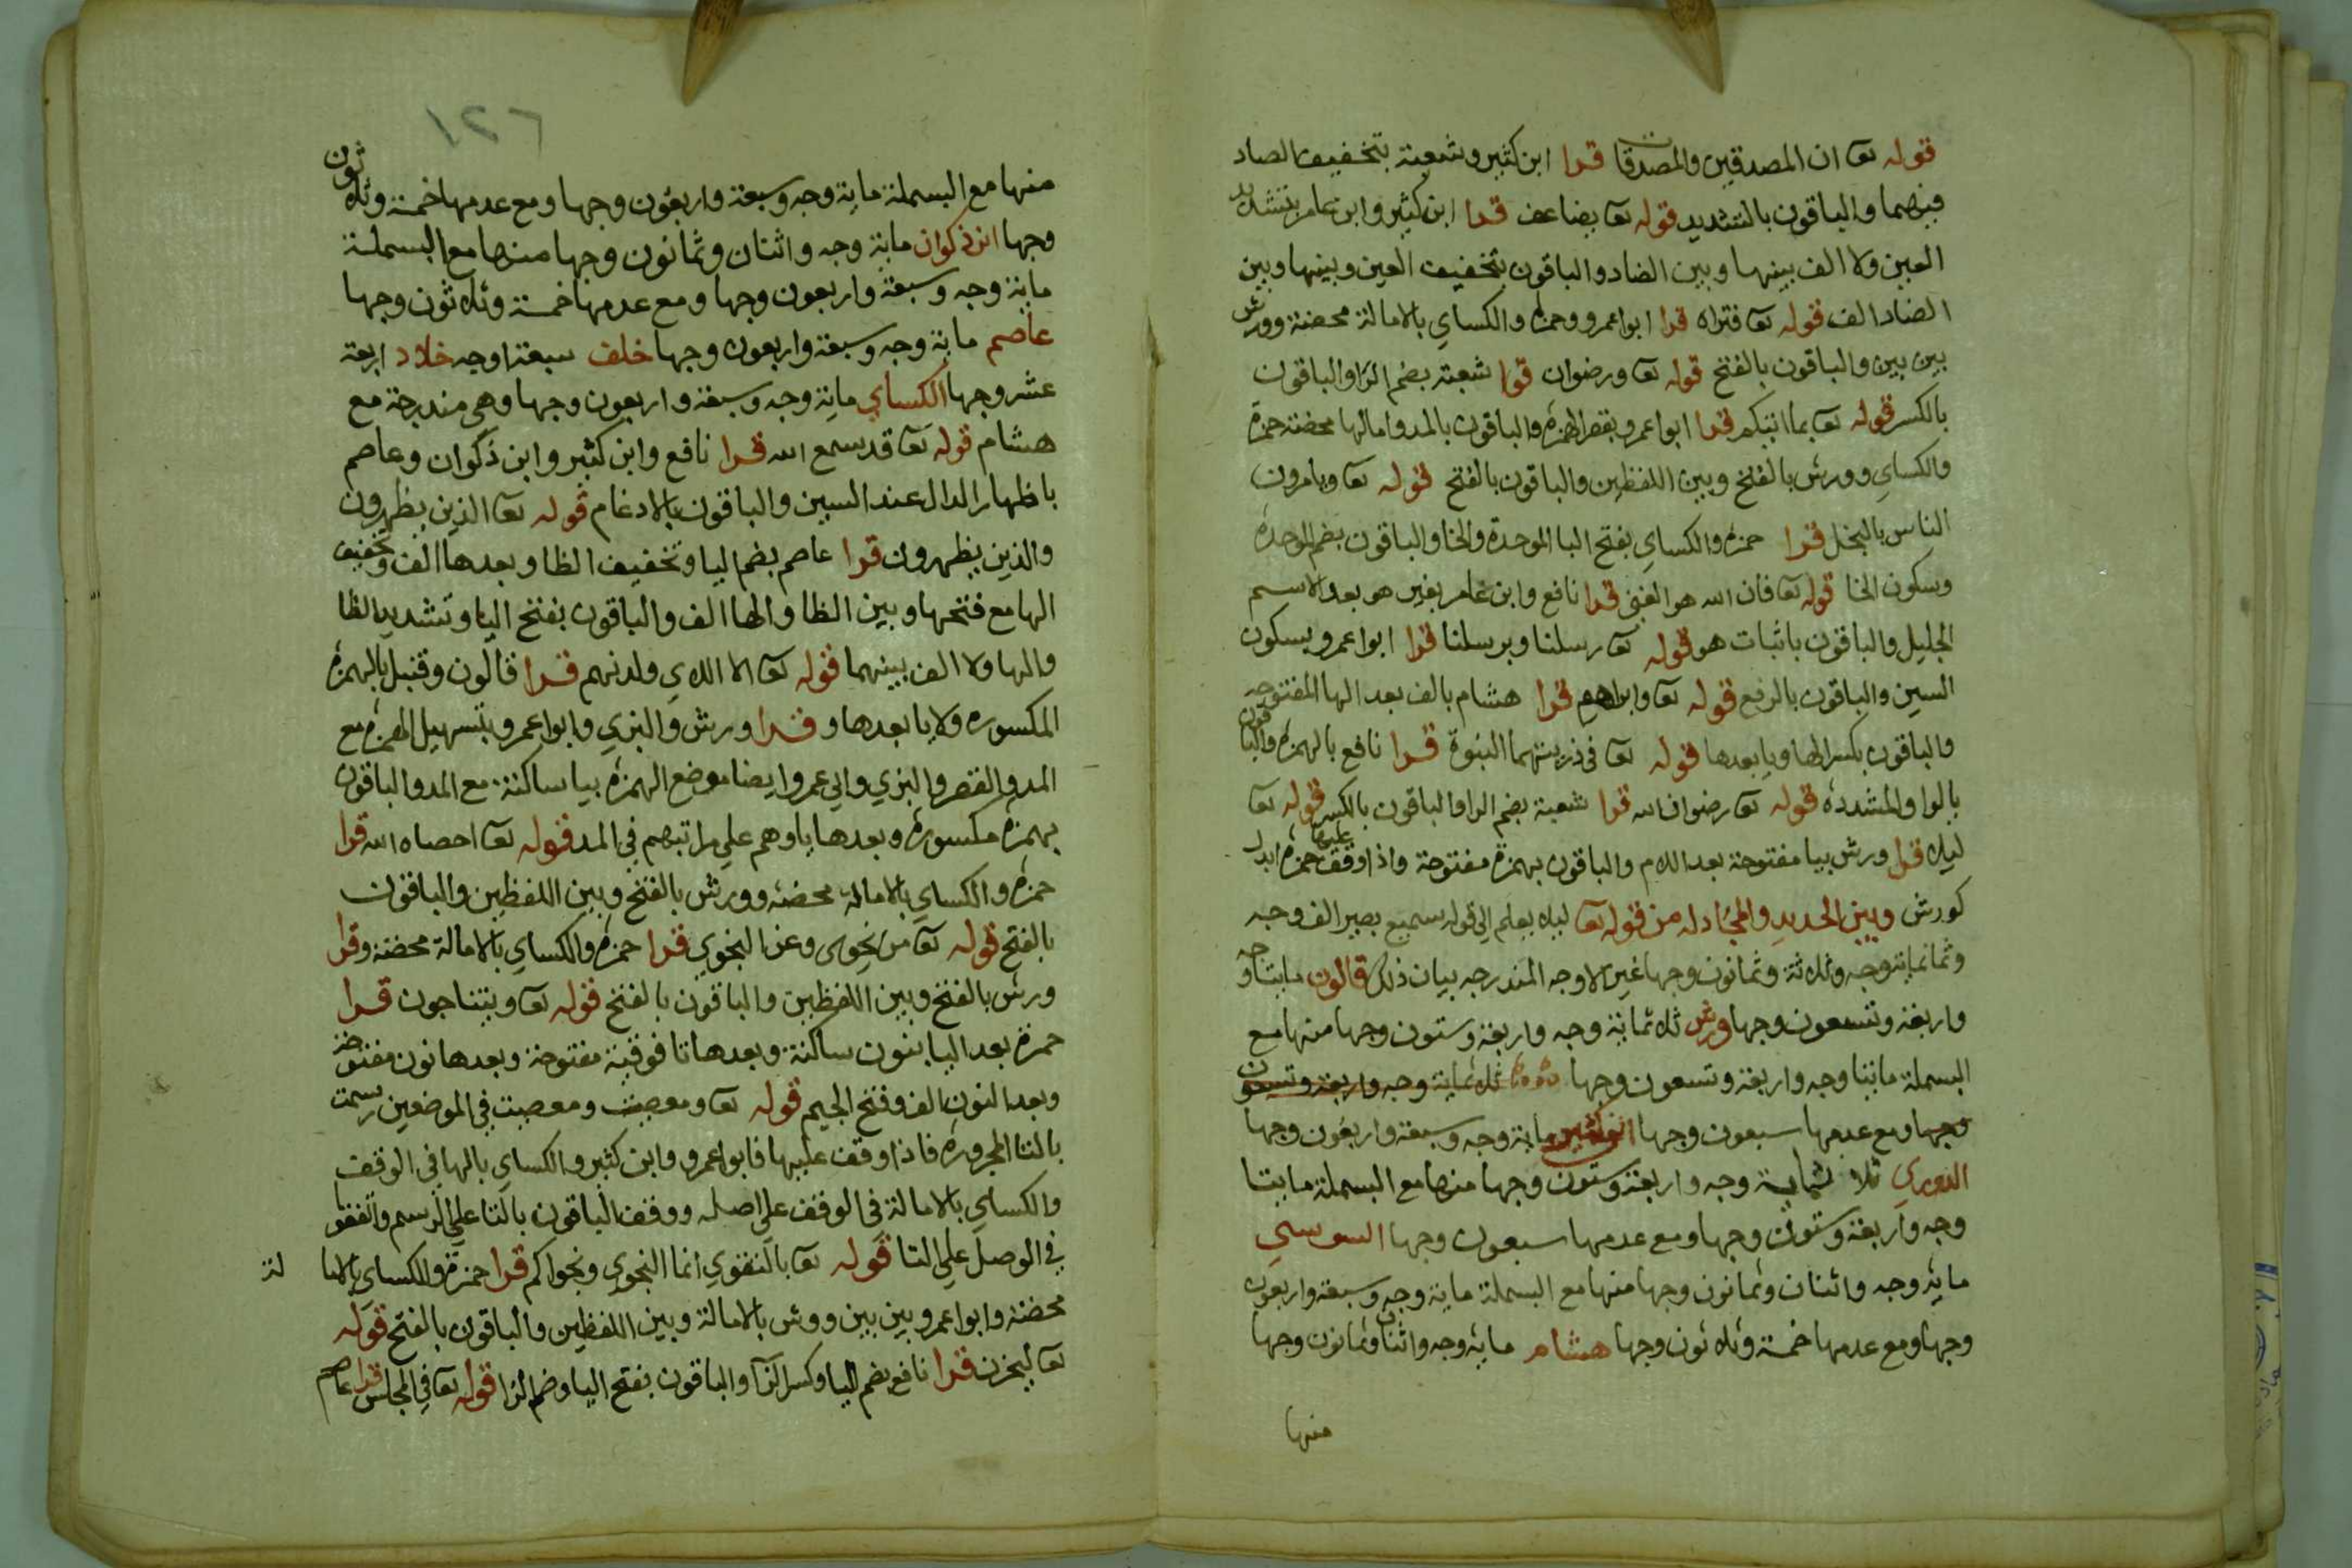 قوله تعا ان المصدقين والمصدقات قرا ابن كثير وشعبة بتخفيف الصاد
فيهما والباقون بالتشديد قوله تعا يضاعف قرا ابن كثير وابن عامر بتشديد
العين ولا الف بينها وبين الضاد والباقون بتخفيف العين وبينها وبين
الضاد الف قوله تعا فتراه قرا ابوا عمرو وحمزة والكساي بالامالة محضة وورش
بين بين والباقون بالفتح قوله تعا ورضوان قرا شعبة بضم الرا والباقون
بالكسر قوله تعا بما اتيكم قرا ابوا عمرو بقصر الهمزة والباقون بالمد وامالها محضة حمزة
والكساي وورش بالفتح وبين اللفظين والباقون بالفتح قوله تعا ويامرون
الناس بالبخل قرا حمزة والكساي بفتح البا الموحدة والخا والباقون بضم الموحدة
وسكون الخا قوله تعا فان الله هو الغني قرا نافع وابن عامر بغير هو بعد الاسم
الجليل والباقون باثبات هو قوله تعا رسلنا وبرسلنا قرا ابوا عمرو بسكون
السين والباقون بالرفع قوله تعا وابراهيم قرا هشام بالف بعد الها المفتوحة
والباقون بكسر الها ويا بعدها قوله تعا في ذريتهما النبوة قرا نافع بالهمزة والباقون
بالواو المشددة قوله تعا رضوان الله قرا شعبة بضم الرا والباقون بالكسر قوله تعا
ليلا قرا ورش بيا مفتوحة بعد اللام والباقون بهمزة مفتوحة واذا وقف عليها حمزة ابدل
كورش وبين الحديد والمجادله من قوله تعا ليلا يعلم الى قوله سميع بصير الف وجه
وثمانماية وجه وثلاثة وثمانون وجها غير الاوجه المندرجه بيان ذلك قالون مايتا وجه
واربعة وتسعون وجها ورش ثلاثماية وجه واربعة وستون وجها منها مع
البسملة مايتا وجه واربعة وتسعون وجها ثلاثماية وجه واربعة وتسعون
وجها ومع عدمها سبعون وجها ابن كثير ماية وجه وسبعة واربعون وجها
الدوري ثلاثماية وجه واربعة وستون وجها منها مع البسملة مايتا
وجه واربعة وستون وجها ومع عدمها سبعون وجها السوسي
ماية وجه واثنان وثمانون وجها منها مع البسملة ماية وجه وسبعة واربعون
وجها ومع عدمها خمسة وثلاثون وجها هشام ماية وجه واثنان وثمانون وجها
منها
١٢٦
منها مع البسملة ماية وجه وسبعة واربعون وجها ومع عدمها خمسة وثلاثون
وجها ابن ذكوان ماية وجه واثنان وثمانون وجها منها مع البسملة
ماية وجه وسبعة واربعون وجها ومع عدمها خمسة وثلاثون وجها
عاصم ماية وجه وسبعة واربعون وجها خلف سبعة اوجه خلاد اربعة
عشر وجها الكساي ماية وجه وسبعة واربعون وجها وهي مندرجة مع
هشام قوله تعا قد سمع الله قرا نافع وابن كثير وابن ذكوان وعاصم
باظهار الدال عند السين والباقون بالادغام قوله تعا الذين يظهرون
والذين يظهرون قرا عاصم بضم اليا وتخفيف الظا وبعدها الف وتخفيف
الها مع فتحها وبين الظا والها الف والباقون بفتح اليا وتشديد الظا
والها ولا الف بينهما قوله تعا الا اللاي ولدنهم قرا قالون وقنبل بالهمزة
المكسوره ولا يا بعدها وقرا ورش والبزي وابوا عمرو بتسهيل الهمزة مع
المد والقصر والبزي وابي عمرو ايضا موضع الهمزة بيا ساكنة مع المد والباقون
بهمزة مكسورة وبعدها يا وهم على مراتبهم في المد قوله تعا احصاه الله قرا
حمزة والكساي بالامالة محضة وورش بالفتح وبين اللفظين والباقون
بالفتح قوله تعا من نجوى وعن النجوي قرا حمزة والكساي بالامالة محضة وقرا
ورش بالفتح وبين اللفظين والباقون بالفتح قوله تعا ويتناجون قرا
حمزة بعد اليا بنون ساكنة وبعدها تا فوقية مفتوحة وبعدها نون مفتوحة
وبعد النون الف وفتح الجيم قوله تعا ومعصيت ومعصيت في الموضعين رسمت
بالتا المجرورة فاذا وقف عليها فابوا عمرو وابن كثير والكساي بالها في الوقف
والكساي بالامالة في الوقف على اصله ووقف الباقون بالتا على الرسم واتفقوا
في الوصل على التا قوله تعا بالتقوي انما النجوي ونجواكم قرا حمزة والكساي بالاما لة
محضة وابوا عمرو بين بين وورش بالامالة وبين اللفظين والباقون بالفتح قوله
تعا ليحزن قرا نافع بضم اليا وكسر الزا والباقون بفتح اليا وضم الزا قوله تعا في المجلس قرا عاصم